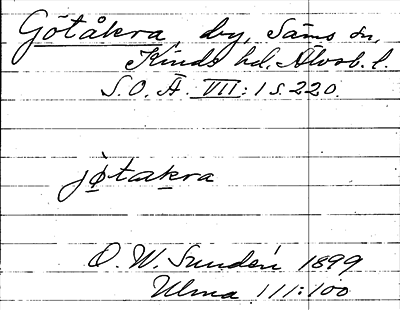 Götåkra, by, Säms sn,
Kinds hd. Älvsb. l.
S. O. Ä. VII:1 s. 220.
jøtakra
O. W. Sundén 1899
Ulma 111:100